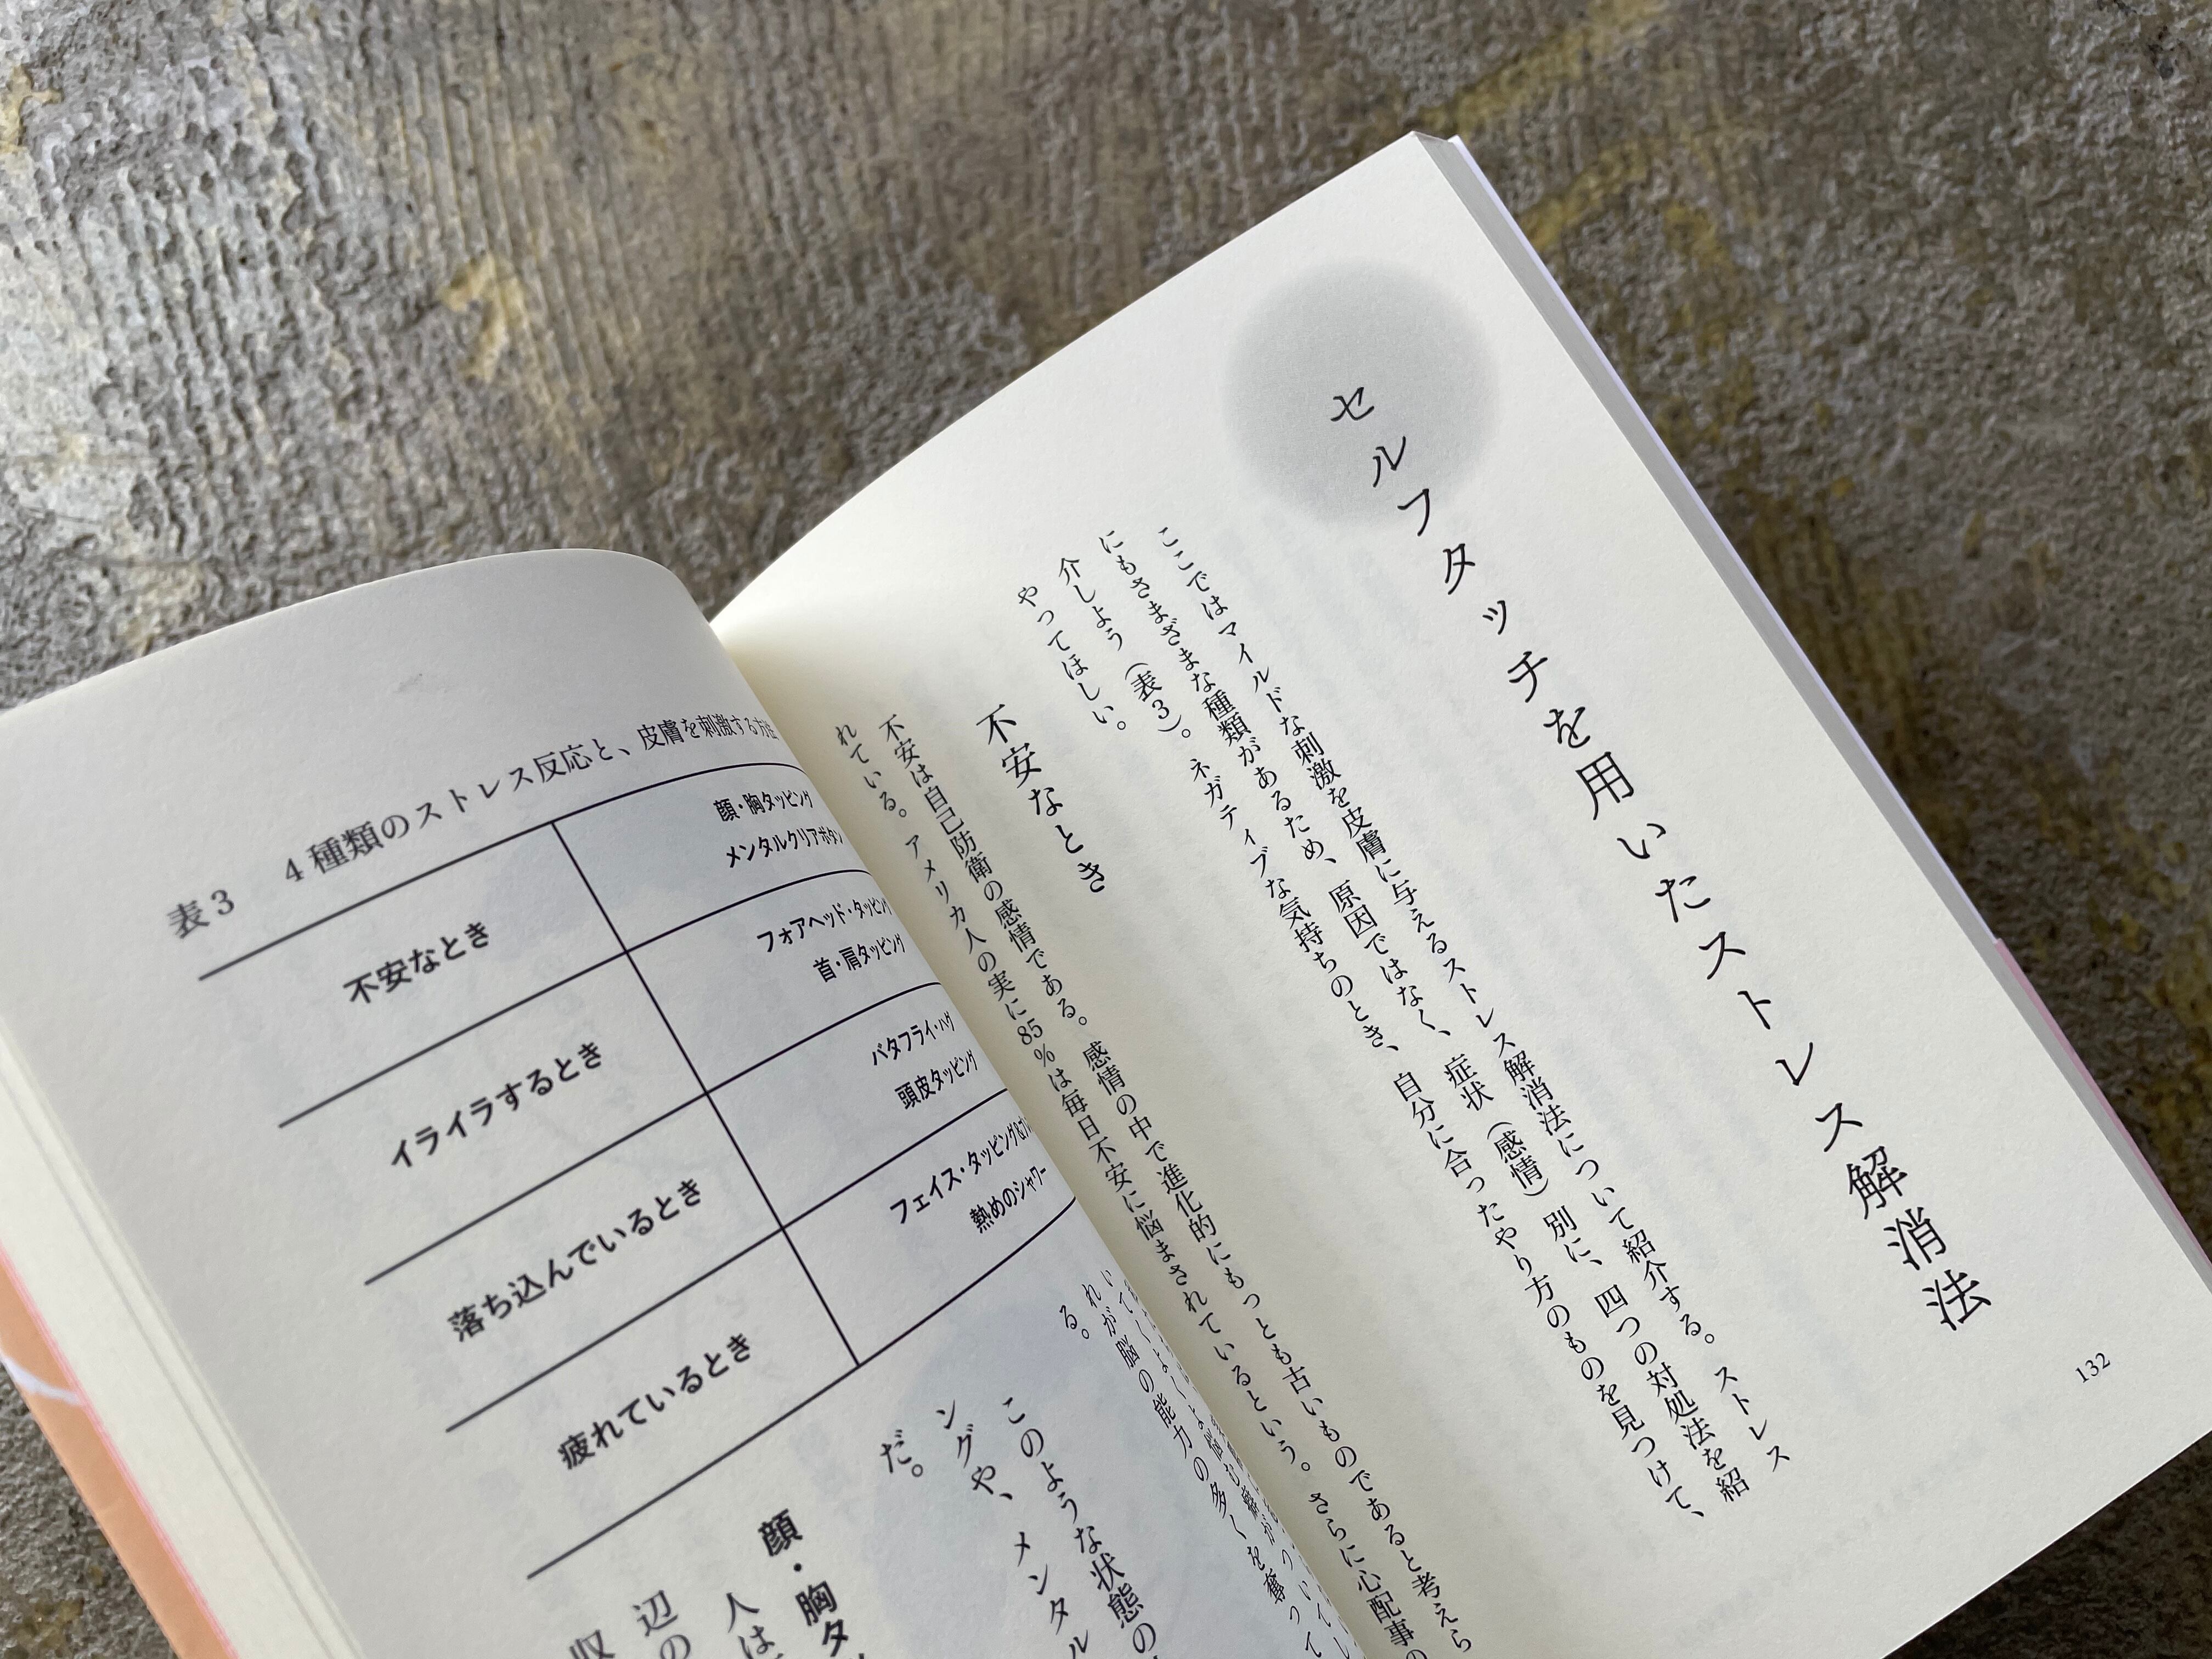 セルフタッチを用いたストレス解消法
ここではマイルドな刺激を皮膚に与えるストレス解消法について紹介する。ストレス
にもさまざまな種類があるため、原因ではなく、症状(感情)別に、四つの対処法を紹
介しよう(表3)。ネガティブな気持ちのとき、自分に合ったやり方のものを見つけて、
やってほしい。
不安なとき
不安は自己防衛の感情である。感情の中で進化的にもっとも古いものであると考えら
れている。アメリカ人の実に85%は毎日不安に悩まされているという。さらに心配事の
132
表3 4種類のストレス反応と、皮膚を刺激する方法
不安なとき
顔・胸タッピング
メンタルクリアボタン
イライラするとき
フォアヘッド・タッピング
首・肩タッピング
落ち込んでいるとき
バタフライ・ハグ
頭皮タッピング
疲れているとき
フェイス・タッピング&
熱めのシャワー
れが脳の能力の多くを奪って
る。
このような状態の
ングや、メンタル
だ。
顔・胸タ
人は
辺の